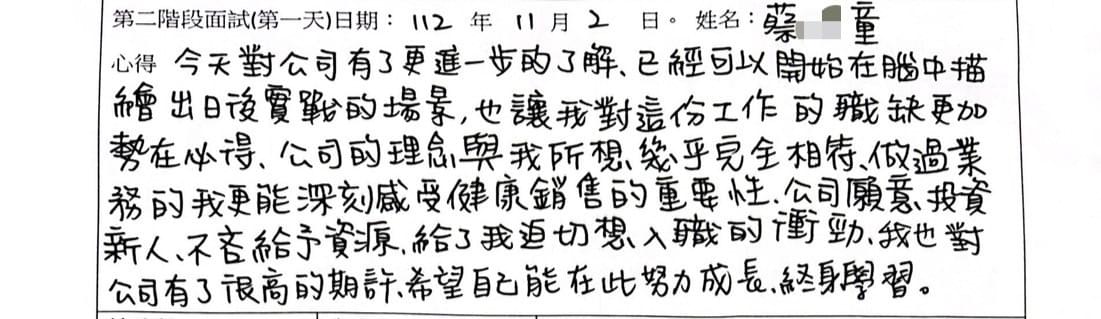 第二階段面試(第一天)日期：112 年 11 月 2 日。 姓名：蔡 童
心得 今天對公司有了更進一步的了解、已經可以開始在腦中描
繪出日後實戰的場景，也讓我對這份工作的職缺更加
勢在必得、公司的理念與我所想幾乎完全相符、做過業
務的我更能深刻感受健康銷售的重要性、公司願意投資
新人、不吝給予資源、給了我迫切想入職的衝勁、我也對
公司有了很高的期許、希望自己能在此努力成長、終身學習。